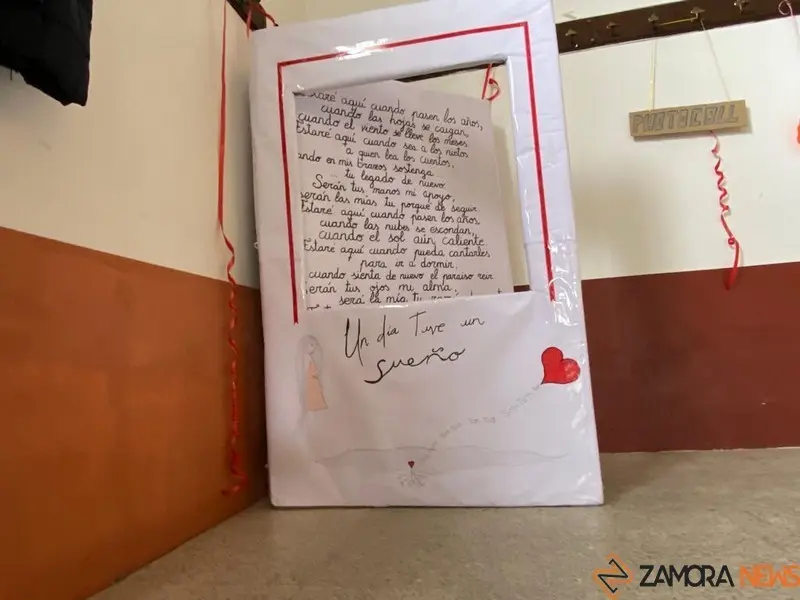 aquí cuando pasen los años,
cuando las hojas se caigan,
cuando el viento se lleve los meses
Estaré aquí cuando sea a los nietos
a quien lea los cuentos.
ando en mis brazos sostenga
tu legado de nuevo
Serán tus manos mi apoyo,
serán las mías tu porqué de seguir.
Estaré aquí cuando pasen los años,
cuando las nubes se escondan,
cuando el sol aún caliente
Estaré aquí cuando pueda cantarles
para ir a dormir,
cuando sienta de nuevo el paraíso reír
Serán tus ojos mi alma,
será la mía tu
Un día Tuve un
sueño
ZAMORA NEWS